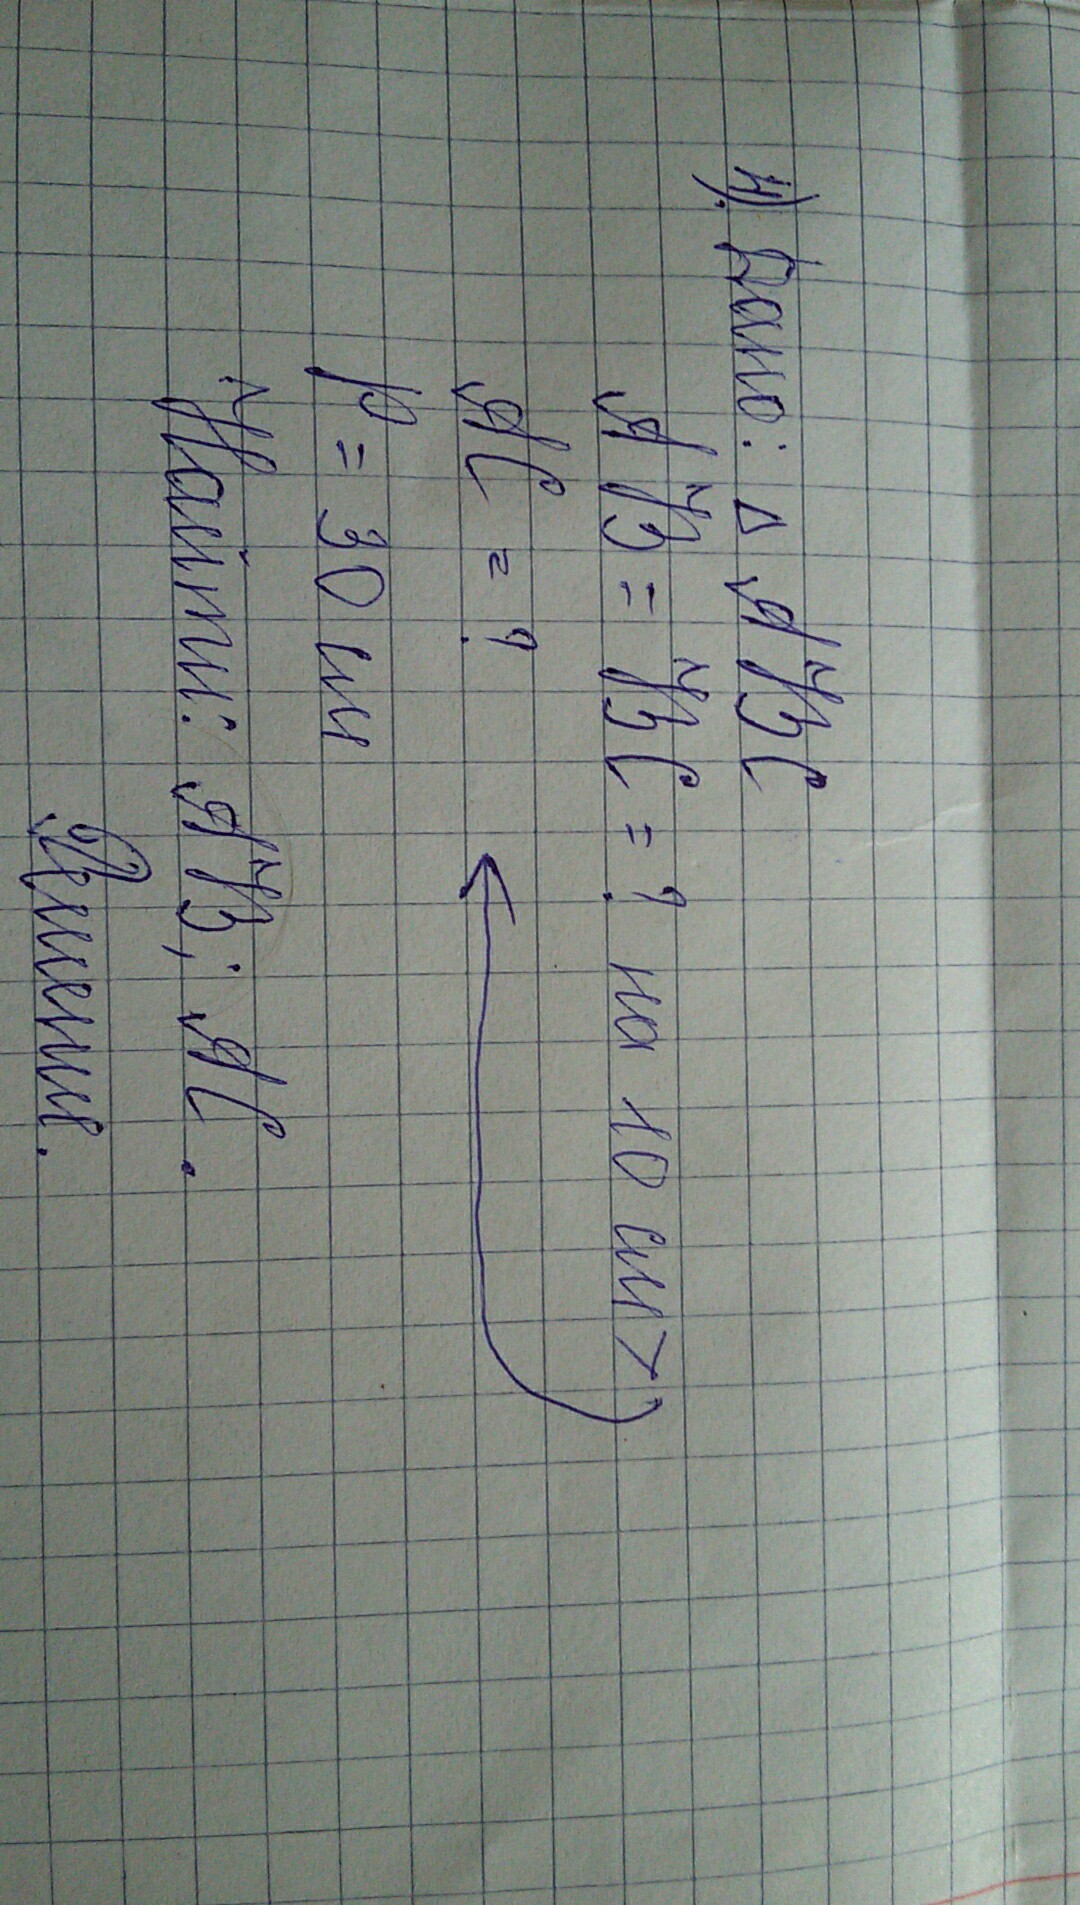 4). Дано: Δ ABC
AB = BC = ? на 10 см >,
AC = ?
P = 30 см
Найти: AB; AC.
Решение.